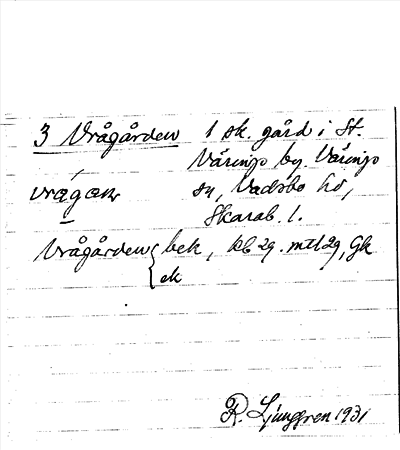 3 Vrågården 1 sk. gård i St.
Väringe by. Väringe
vrågaɳ sn, Vadsbo hd,
Skarab. l.
Vrågården { bek, kb 29. mtl 29, Gk
ek
R. Ljunggren 1931